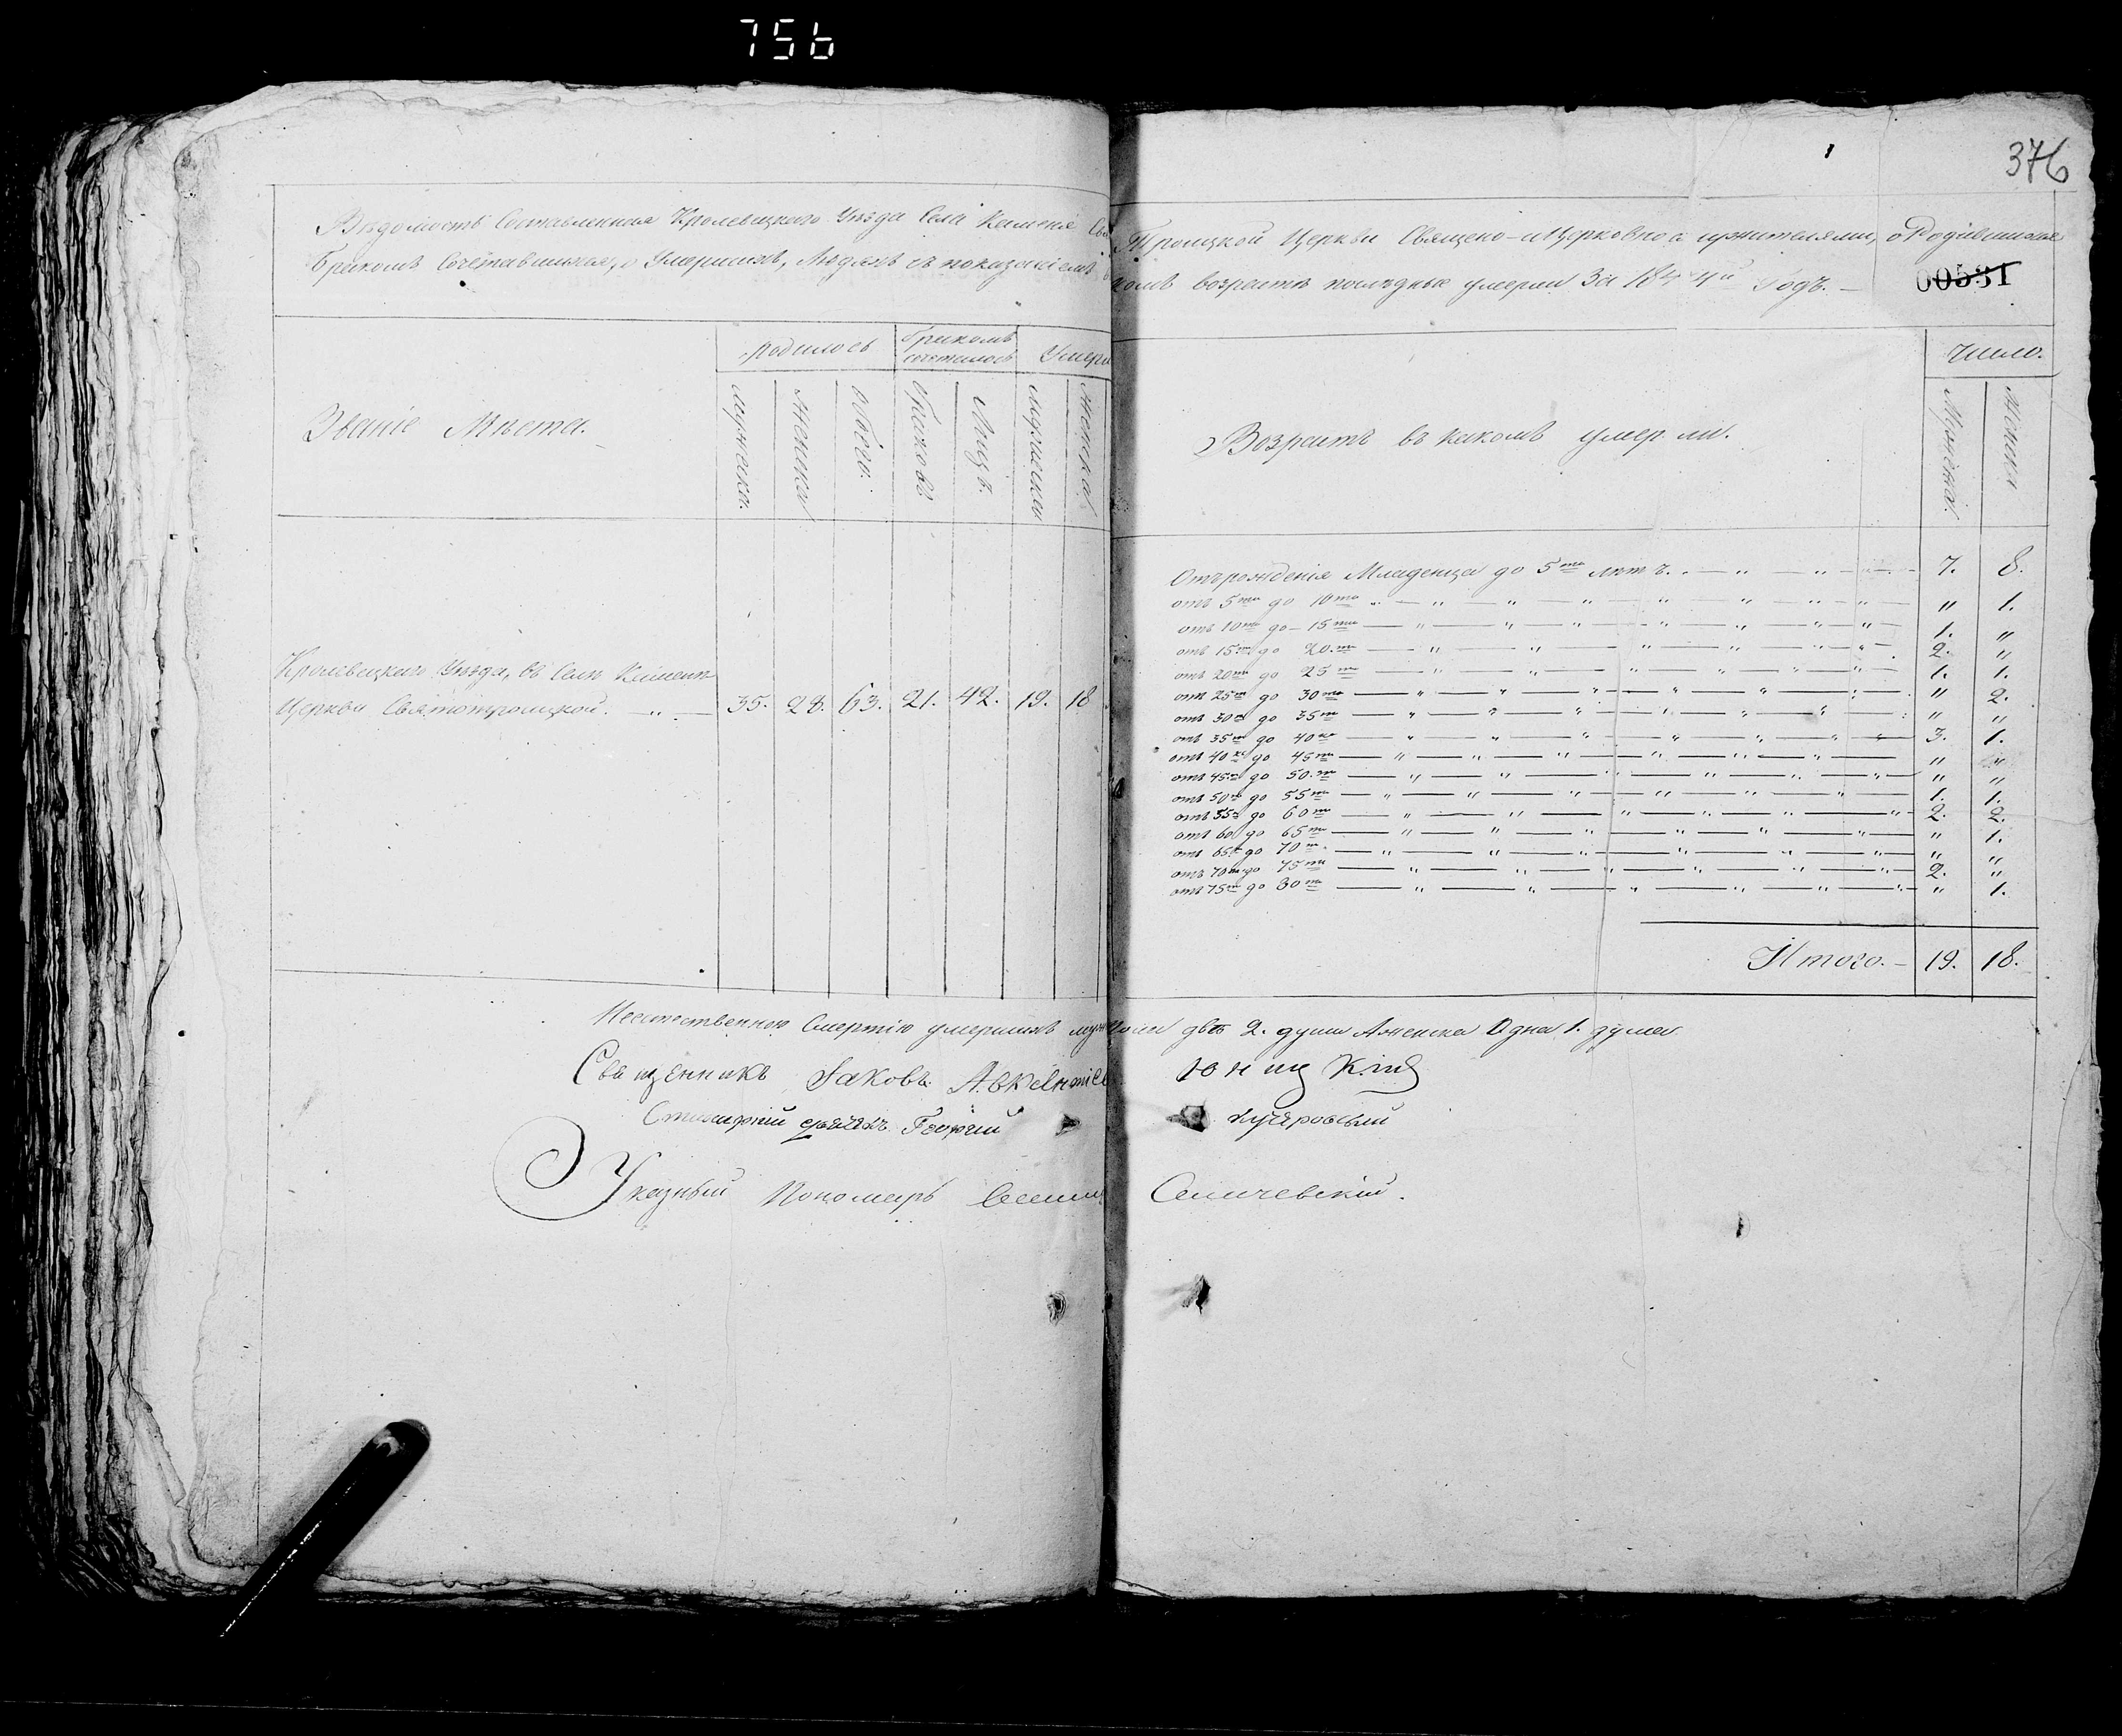 756
376
Вѣдомость Составленная Кролевецкаго Уѣзда Села Каменя Троицкой Церкви Священо-и Церковно служителями, о Родившихся
бракомъ Сочетавшихся, о Умершихъ, Людяхъ съ показаніемъ возрастѣ послѣдные умерли За 1844й Годъ.
00531
Званіе Мѣста.
родилось
бракомъ сочеталось
Умерш
мужеска.
Женска
обоего.
браковъ
Лицъ.
мужеска
женска
Возрастъ въ какомъ умерли.
Число.
Мужеска
Женска
Кролевецкаго Уѣзда, въ Селѣ Каменѣ
Церкви Святотроицкой. 35. 28. 63. 21. 42. 19. 18
Отъ рожденія Младенца до 5ти лѣтъ. 7. 8.
отъ 5ти до 10ти " 1.
отъ 10ти до 15ти 1. "
отъ 15ти до 20.ти 2. "
отъ 20ти до 25ти 1. 1.
отъ 25ти до 30ти " 2.
отъ 30ти до 35ти " "
отъ 35ти до 40ка 3. 1.
отъ 40ка до 45ти " "
отъ 45ти до 50.ти " "
отъ 50ти до 55ти 1. 1.
отъ 55ти до 60ти 2. 2.
отъ 60 до 65ти " 1.
отъ 65ти до 70ти " "
отъ 70ти до 75ти 2. "
отъ 75ти до 80ти " 1.
Итого. 19. 18.
Неестественною Смертію умершихъ двѣ 2. души Женска Одна 1. душа
Священникъ Іаковъ
Стихарный дьячекъ Георгій Кучеровскій
Указный Пономарь